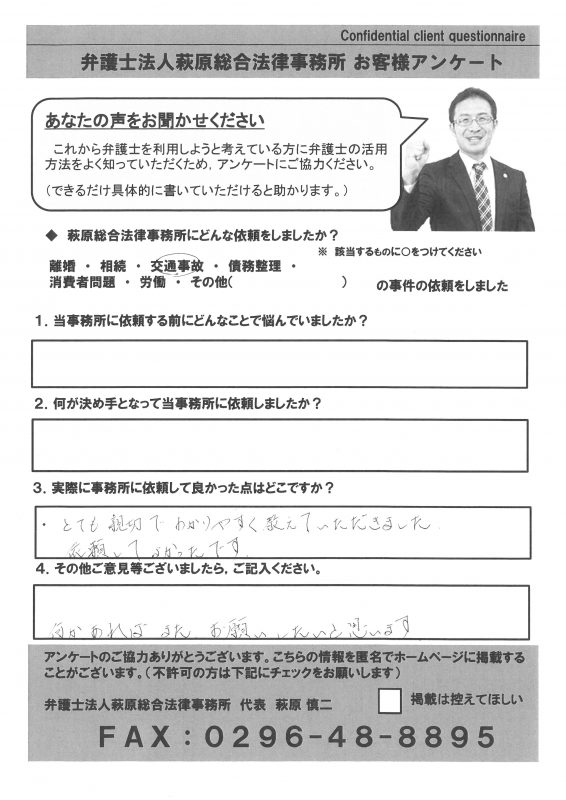 Confidential client questionnaire
弁護士法人萩原総合法律事務所 お客様アンケート
あなたの声をお聞かせください
これから弁護士を利用しようと考えている方に弁護士の活用
方法をよく知っていただくため，アンケートにご協力ください。
（できるだけ具体的に書いていただけると助かります。）
◆ 萩原総合法律事務所にどんな依頼をしましたか？
※ 該当するものに○をつけてください
離婚 ・ 相続 ・ 交通事故 ・ 債務整理 ・
消費者問題 ・ 労働 ・ その他（ ） の事件の依頼をしました
１．当事務所に依頼する前にどんなことで悩んでいましたか？
２．何が決め手となって当事務所に依頼しましたか？
３．実際に事務所に依頼して良かった点はどこですか？
・とても親切でわかりやすく教えていただきました．
依頼してよかったです．
４．その他ご意見等ございましたら，ご記入ください。
何かあればまたお願いしたいと思います
アンケートのご協力ありがとうございます。こちらの情報を匿名でホームページに掲載する
ことがございます。（不許可の方は下記にチェックをお願いします）
弁護士法人萩原総合法律事務所 代表 萩原 慎二
掲載は控えてほしい
ＦＡＸ：０２９６-４８-８８９５